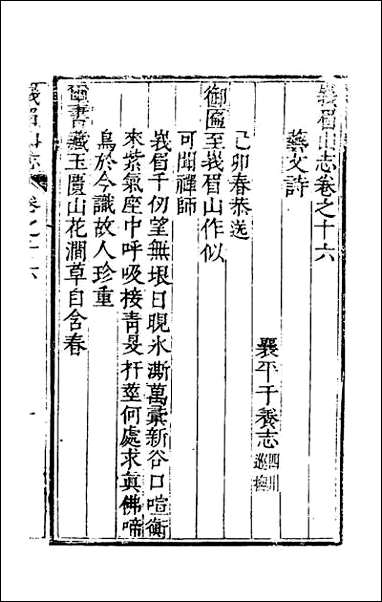 峩眉山志卷之十六
藝文詩
襄平于養志四川巡撫
己卯春恭送
御匾至峩眉山作似
可聞禪師
峩眉千仞望無垠日晛氷澌萬彙新谷口喧衡
來紫氣座中呼吸接青旻拄筇何處求眞佛啼
鳥於今識故人珍重
璽書藏玉覆山花澗草自含春
峩眉山志
卷之十六